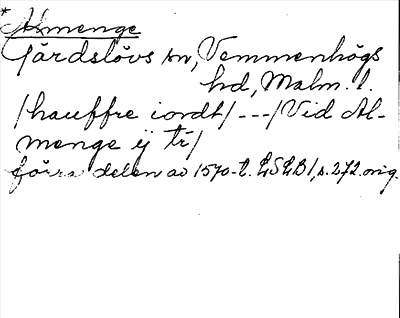 *Almenge
Gärdslövs sn, Vemmenhögs
hd, Malm. l.
/hauffre iordt/---/Vid Al-
menge ij tr/
förra delen av 1570-t. LSLB 1, s. 272. orig.